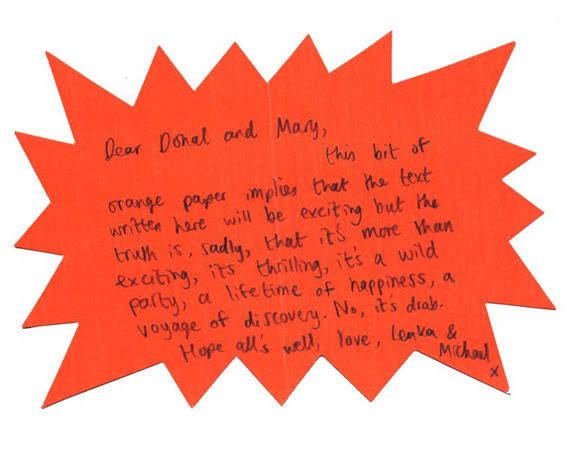 Dear Donal and Mary,
this bit of
orange paper implies that the text
written here will be exciting but the
truth is, sadly, that it's more than
exciting, it's thrilling, it's a wild
party, a lifetime of happiness, a
voyage of discovery. No, it's drab.
Hope all's well, love, Lenka &
Michael
x